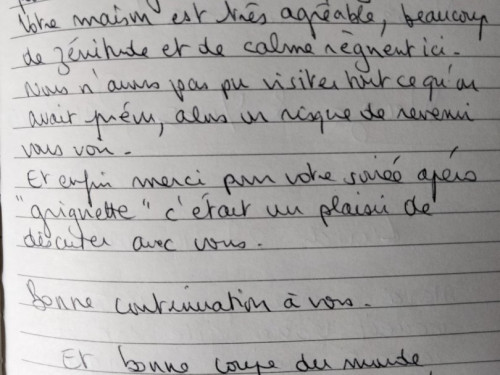 Votre maison est très agréable, beaucoup
de zénitude et de calme règnent ici.
Nous n'avons pas pu visiter tout ce qu'on
avait prévu, alors on risque de revenir
vous voir.
Et enfin merci pour votre soirée apéro
"guignette" c'était un plaisir de
discuter avec vous.
Bonne continuation à vous.
Et bonne coupe du monde,